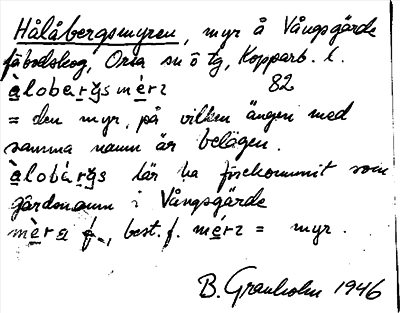 Hålåbergsmyren, myr å Vångsgärde
fäbodskog, Orsa sn ö tg, Kopparb. l.
àlobarg̮s mɛ́rɛ 82
= den myr, på vilken ängen med
samma namn är belägen.
àlobárg̮s lär ha förekommit som
gårdsnamn i Vångsgärde
mɛ̀ra f., best. f. mɛ́rɛ = myr.
B. Granholm 1946